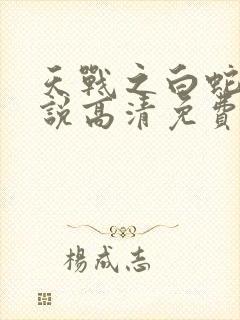 天戰之白蛇
說高清免費
楊成志